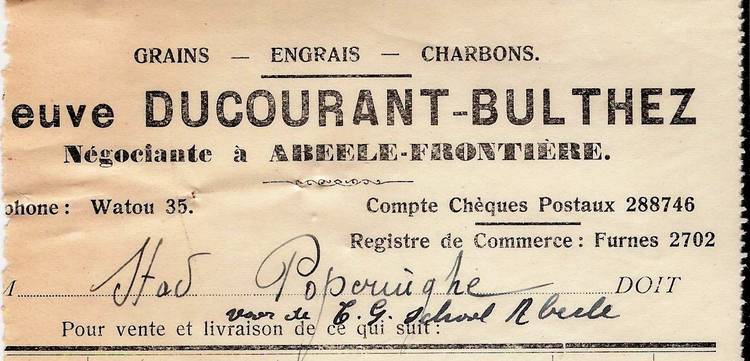 GRAINS — ENGRAIS — CHARBONS.
euve DUCOURANT-BULTHEZ
Négociante à ABEELE-FRONTIÈRE.
phone: Watou 35. Compte Chèques Postaux 288746
Registre de Commerce: Furnes 2702
M Stad Poperinghe DOIT
voor de T. G. School Abeele
Pour vente et livraison de ce qui suit: